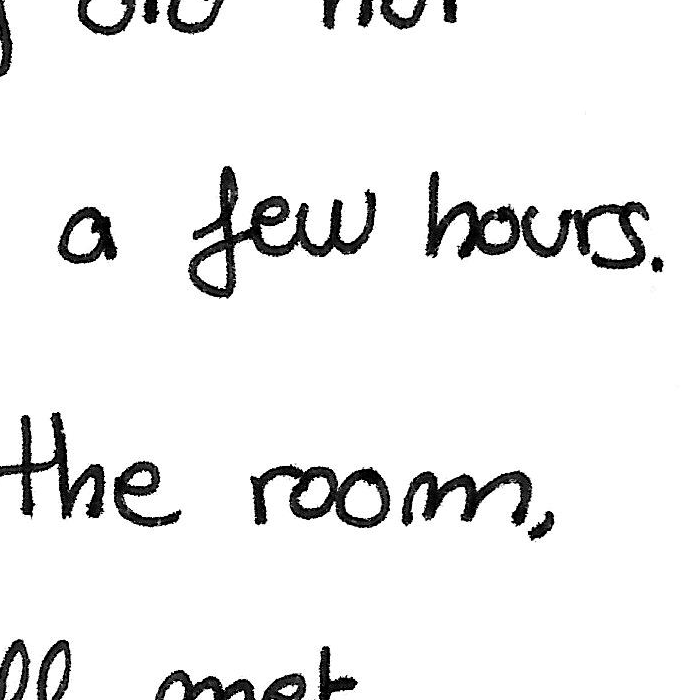 did not
a few hours.
the room,
met